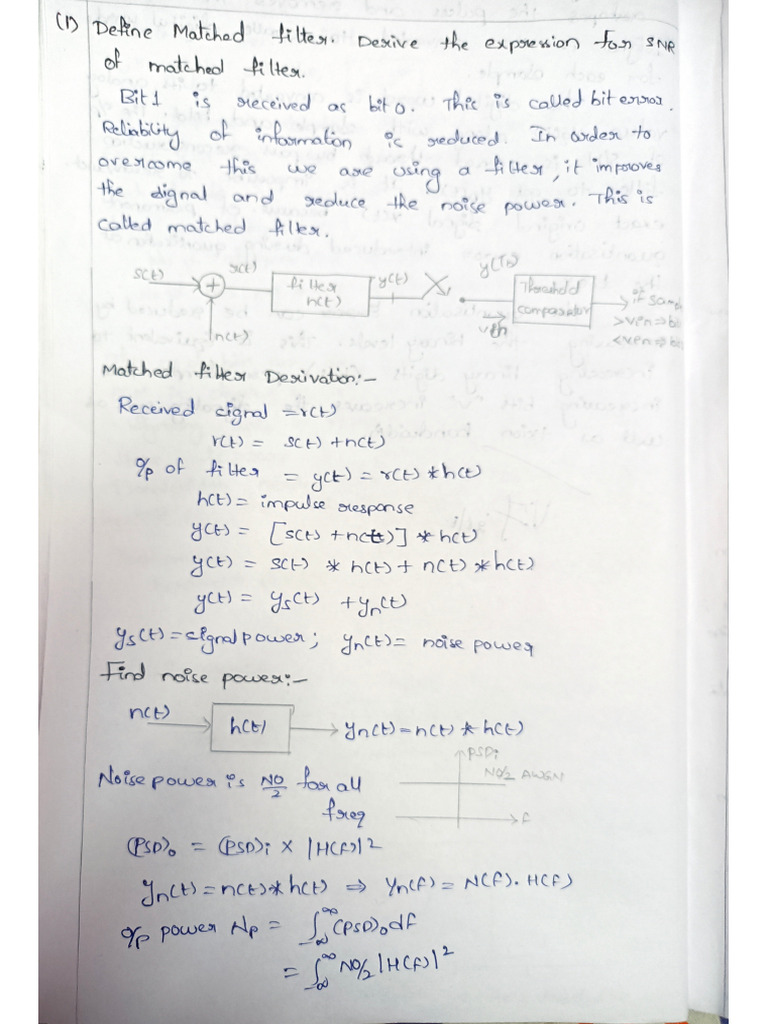 (1) Define Matched filter. Derive the expression for SNR
of matched filter.
Bit 1 is received as bit 0. This is called bit error.
Reliability of information is reduced. In order to
overcome this we are using a filter, it improves
the signal and reduce the noise power. This is
called matched filter.
s(t) r(t) filter h(t) y(t) y(T₀) Threshold comparator if sam
n(t) vth >vth⇒b
<vth⇒b
Matched filter Derivation:-
Received signal = r(t)
r(t) = s(t) + n(t)
o/p of filter = y(t) = r(t) * h(t)
h(t) = impulse response
y(t) = [s(t) + n(t)] * h(t)
y(t) = s(t) * h(t) + n(t) * h(t)
y(t) = yₛ(t) + yₙ(t)
yₛ(t) = signal power; yₙ(t) = noise power
Find noise power:-
n(t) h(t) yₙ(t) = n(t) * h(t)
PSDi
Noise power is N0/2 for all N0/2 AWGN
freq f
(PSD)₀ = (PSD)i × |H(f)|²
yₙ(t) = n(t) * h(t) ⇒ Yₙ(f) = N(f). H(f)
o/p power Np = ∫₋∞^∞ (PSD)₀ df
= ∫₋∞^∞ N0/2 |H(f)|²